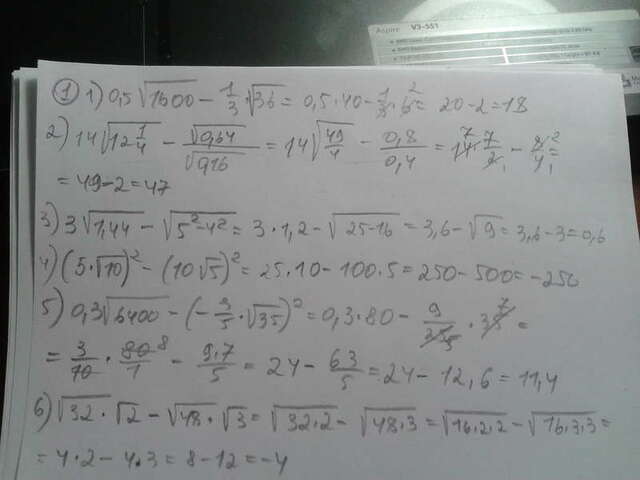 Aspire V3-551
① 1) 0,5√1600 - 1/3·√36 = 0,5·40 - 1/3·6² = 20-2=18
2) 14√12 1/4 - √0,64/√0,16 = 14√49/4 - 0,8/0,4 = 14⁷·7/2₁ - 8²/4₁ =
= 49-2=47
3) 3√1,44 - √5²-4² = 3·1,2 - √25-16 = 3,6-√9 = 3,6-3=0,6
4) (5·√10)² - (10√5)² = 25·10 - 100·5 = 250-500 = -250
5) 0,3√6400 - (-3/5·√35)² = 0,3·80 - 9/25₅·35⁷ =
= 3/10·80⁸/1 - 9·7/5 = 24 - 63/5 = 24-12,6 = 11,4
6) √32·√2 - √48·√3 = √32·2 - √48·3 = √16·2·2 - √16·3·3 =
= 4·2 - 4·3 = 8-12 = -4